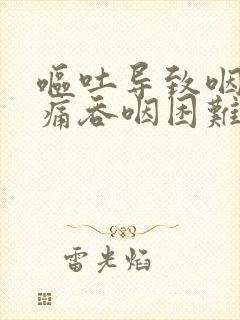 嘔吐导致咽
痛吞咽困難
雷光焰